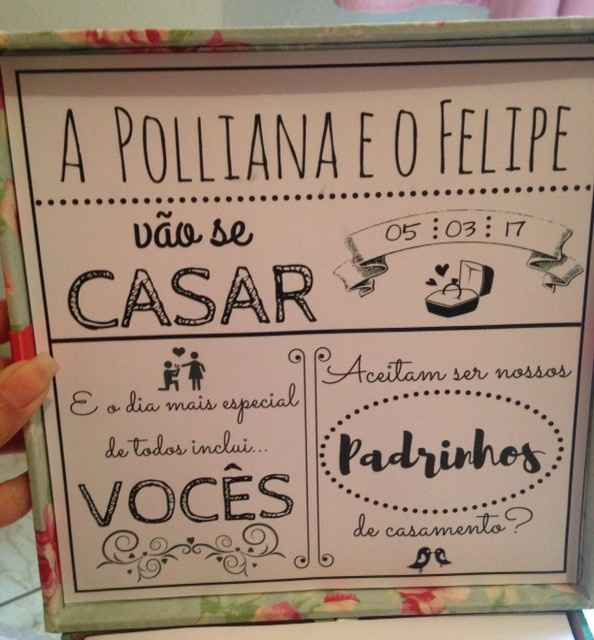 A POLLIANA E O FELIPE
vão se
CASAR
05 : 03 : 17
E o dia mais especial
de todos inclui...
VOCÊS
Aceitam ser nossos
Padrinhos
de casamento?